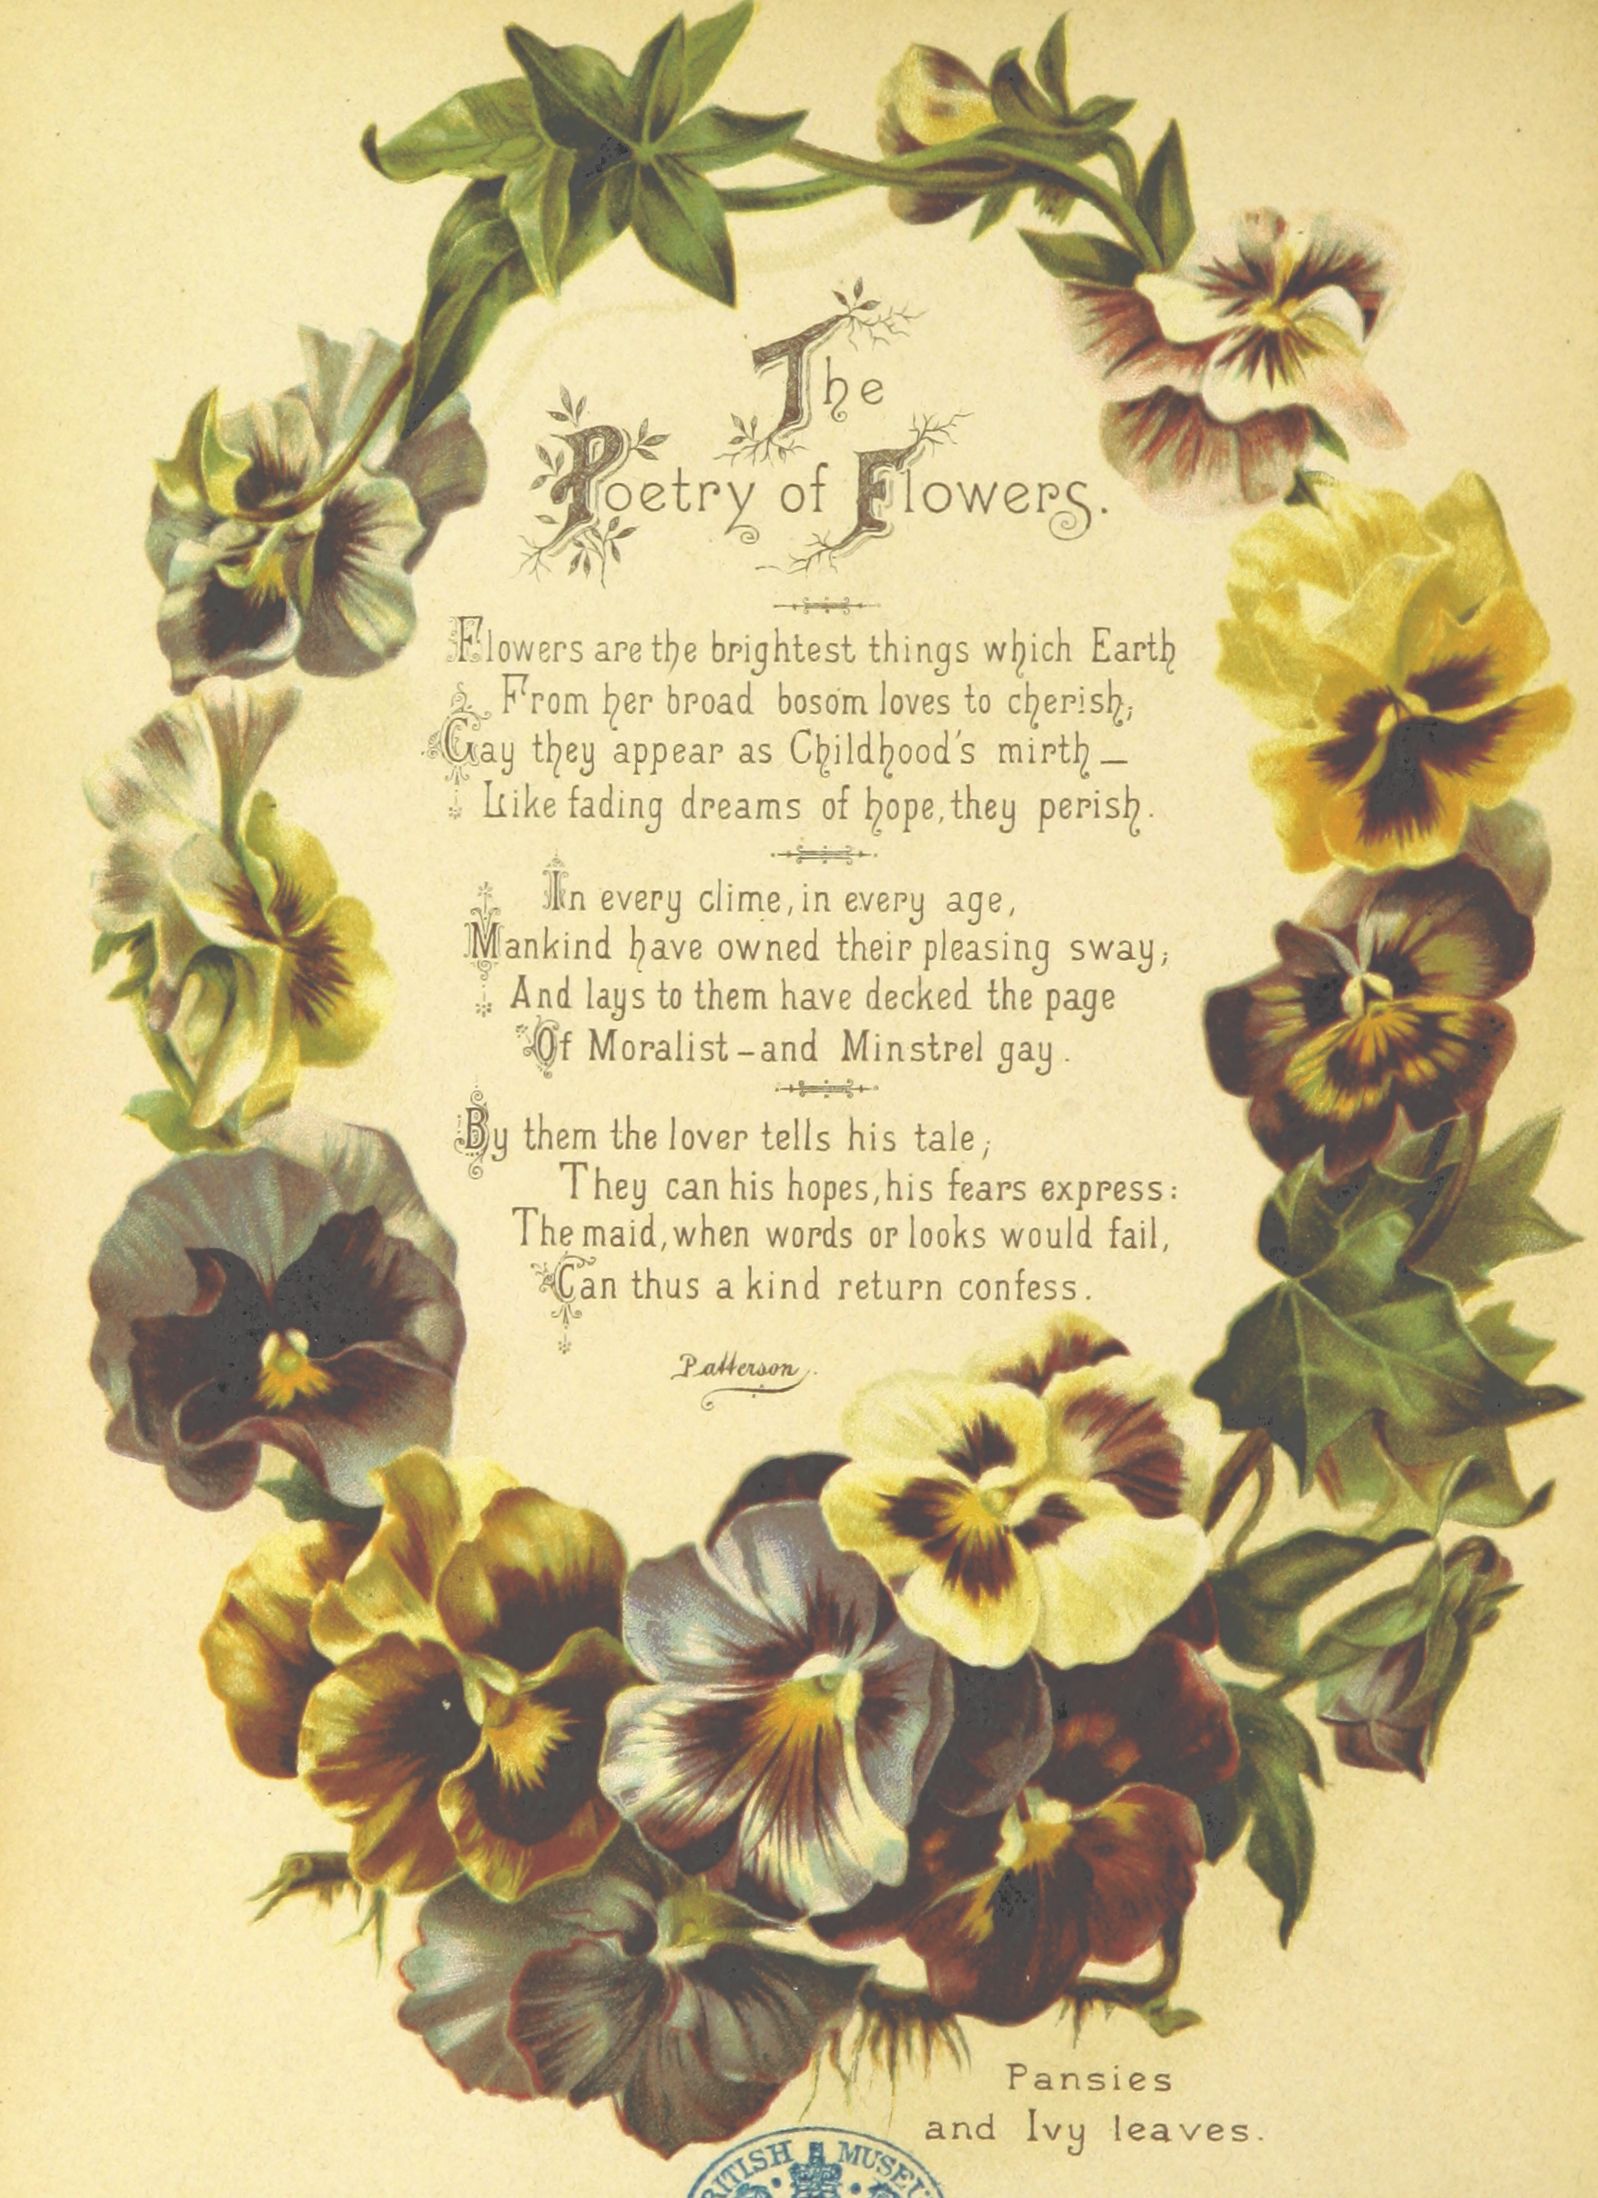 The
Poetry of Flowers.
Flowers are the brightest things which Earth
From her broad bosom loves to cherish;
Gay they appear as Childhood's mirth —
Like fading dreams of hope, they perish.
In every clime, in every age,
Mankind have owned their pleasing sway;
And lays to them have decked the page
Of Moralist – and Minstrel gay.
By them the lover tells his tale;
They can his hopes, his fears express:
The maid, when words or looks would fail,
Can thus a kind return confess.
Patterson.
Pansies
and Ivy leaves.
RITISH MUSEU